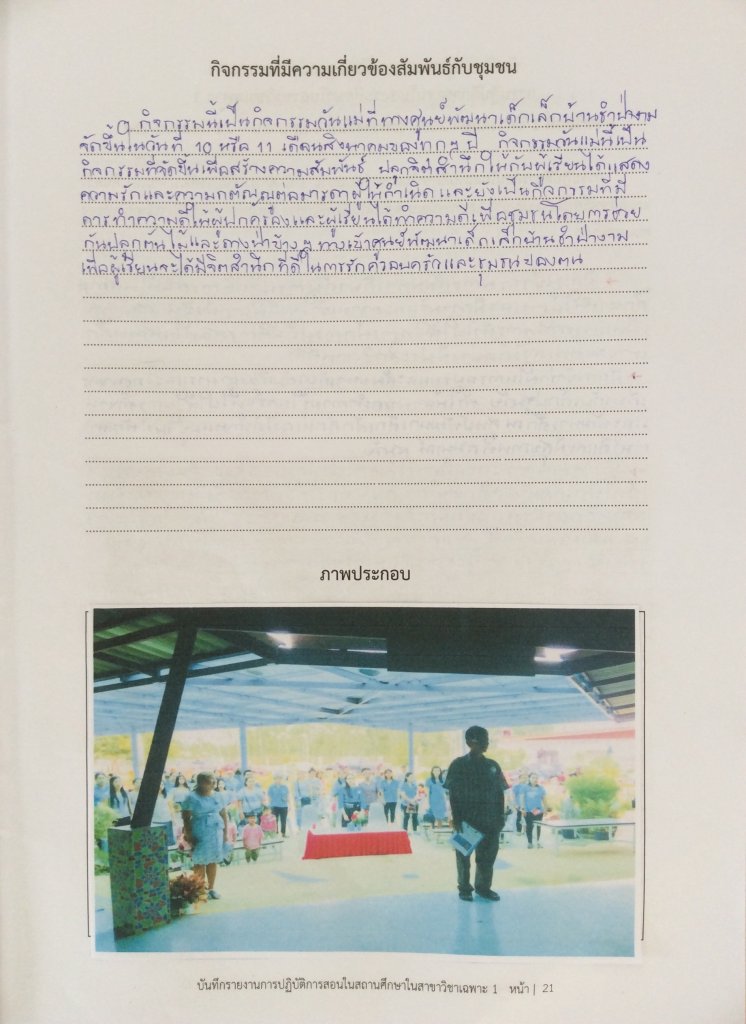 กิจกรรมที่มีความเกี่ยวข้องสัมพันธ์กับชุมชน
กิจกรรมนี้เป็นกิจกรรมวันแม่ที่ทางศูนย์พัฒนาเด็กเล็กบ้านรำป่างาม
จัดขึ้นในวันที่ 10 หรือ 11 เดือนสิงหาคมของทุกๆ ปี กิจกรรมวันแม่นี้เป็น
กิจกรรมที่จัดขึ้นเพื่อสร้างความสัมพันธ์ ปลุกจิตสำนึกให้กับผู้เรียนได้แสดง
ความรักและความกตัญญูต่อมารดาผู้ให้กำเนิด และยังเป็นกิจกรรมที่มี
การทำความดีให้ผู้ปกครองและผู้เรียนได้ทำความดีเพื่อชุมชนโดยการช่วย
กันปลูกต้นไม้และถางป่าข้างๆ ทางเข้าศูนย์พัฒนาเด็กเล็กบ้านรำป่างาม
เพื่อผู้เรียนจะได้มีจิตสำนึกที่ดีในการรักครอบครัวและชุมชนของตน
ภาพประกอบ
บันทึกรายงานการปฏิบัติการสอนในสถานศึกษาในสาขาวิชาเฉพาะ 1 หน้า | 21